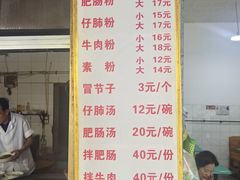 肥肠粉 大 17元
仔肺粉 小 15元
大 17元
牛肉粉 小 16元
大 18元
素粉 小 12元
大 14元
冒节子 3元/个
仔肺汤 12元/碗
肥肠汤 20元/碗
拌肥肠 40元/份
拌牛肉 40元/份